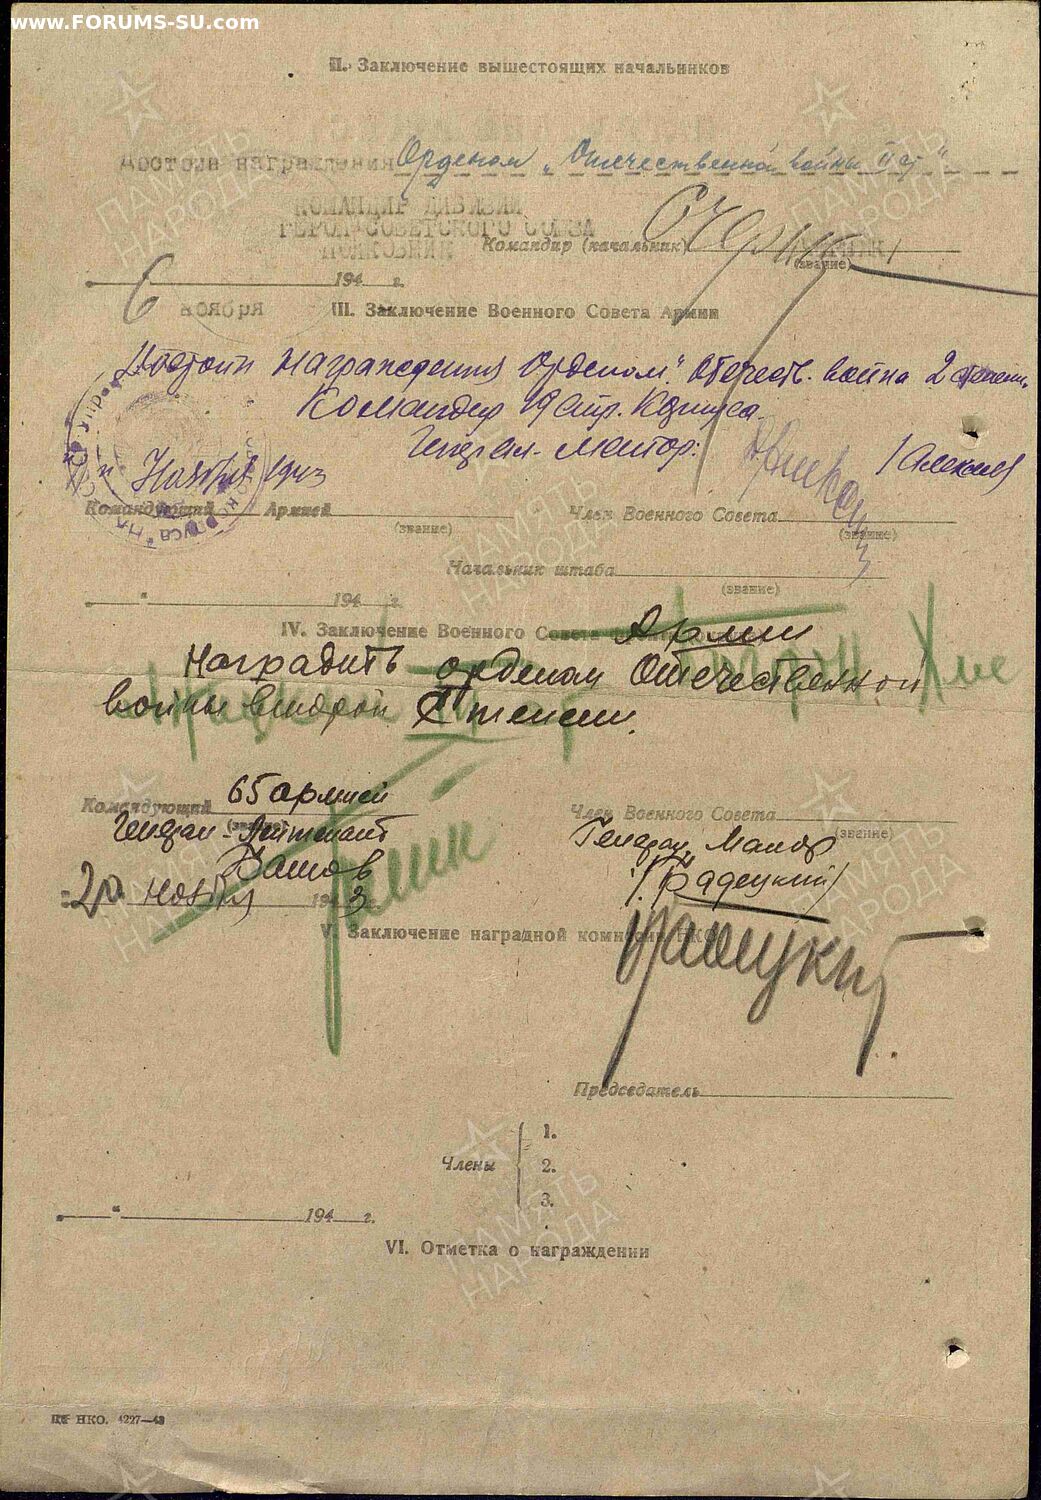 www.FORUMS-SU.com
II. Заключение вышестоящих начальников
Достоин награждения Орденом „Отечественной войны II ст"
КОМАНДИР ДИВИЗИИ
ГЕРОЙ СОВЕТСКОГО СОЮЗА
ПОЛКОВНИК
Командир (начальник)
(звание)
6 194 г.
ноября
III. Заключение Военного Совета Армии
Достоин награждения Орденом „Отечеств. война 2 степени"
Командир 19 стр. Корпуса
Генерал-майор:
Ноября 1943
Командующий Армией
(звание)
Член Военного Совета
(звание)
Начальник штаба
(звание)
„ “ 194 г.
IV. Заключение Военного Совета Армии
Наградить орденом Отечественной
войны второй степени.
Командующий 65 армией
(звание)
Генерал-Лейтенант
Батов
20 ноября 1943
Член Военного Совета
(звание)
Генерал Майор
(Радецкий)
Радецкий
V. Заключение наградной комиссии НКО
Председатель
Члены
1.
2.
3.
„ “ 194 г.
VI. Отметка о награждении
НКО. 4227—43
ПАМЯТЬ
НАРОДА